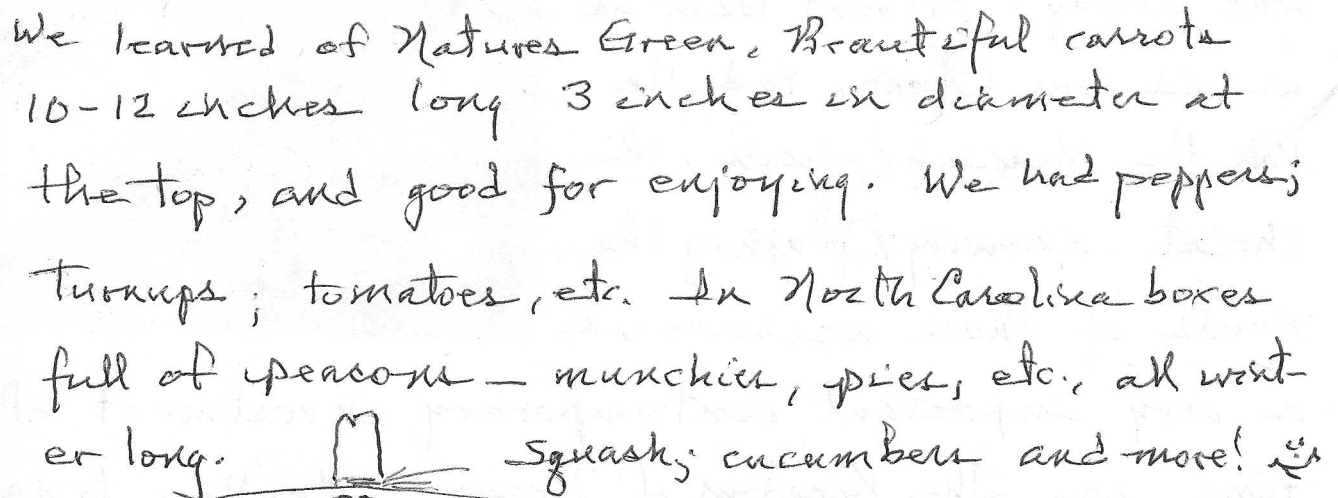 We learned of Natures Green. Beautiful carrots
10-12 inches long 3 inches in diameter at
the top, and good for enjoying. We had peppers;
Turnups; tomatoes, etc. In North Carolina boxes
full of peacons - munchies, pies, etc., all wint-
er long. Squash; cucumbers and more!